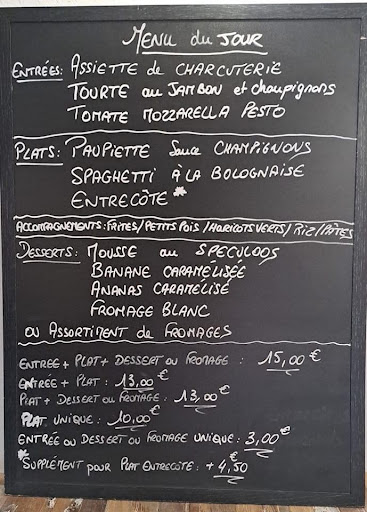 MENU du JOUR
ENTRÉES: ASSIETTE de CHARCUTERIE
TOURTE au JAMBON et champignons
TOMATE MOZZARELLA PESTO
PLATS: PAUPIETTE Sauce CHAMPIGNONS
SPAGHETTI À LA BOLOGNAISE
ENTRECÔTE *
ACCOMPAGNEMENTS: FRITES/PETITS POIS/HARICOTS VERTS/RIZ/PÂTES
DESSERTS: MOUSSE au SPECULOOS
BANANE CARAMELISÉE
ANANAS CARAMELISÉ
FROMAGE BLANC
OU ASSORTIMENT de FROMAGES
ENTREE + PLAT + DESSERT OU FROMAGE : 15,00 €
ENTRÉE + PLAT : 13,00 €
PLAT + DESSERT OU FROMAGE : 13,00 €
PLAT UNIQUE : 10,00 €
ENTRÉE OU DESSERT OU FROMAGE UNIQUE : 3,00 €
* SUPPLÉMENT POUR PLAT ENTRECÔTE : + 4,50 €